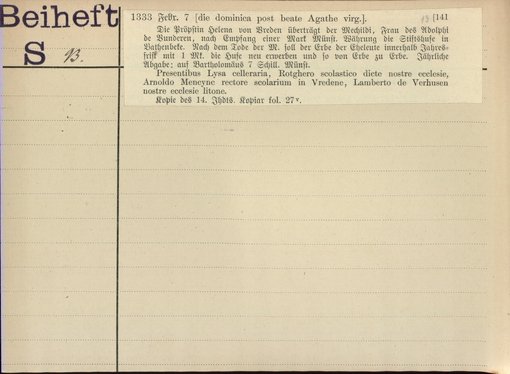 Beiheft
S 93.
1333 Febr. 7 [die dominica post beate Agathe virg.]. [141
Die Pröpstin Helena von Vreden überträgt der Mechildi, Frau des Adolphi
de Bunderen, nach Empfang einer Mark Münst. Währung die Stiftshufe in
Bathenbeke. Nach dem Tode der M. soll der Erbe der Eheleute innerhalb Jahres-
frist mit 1 Mk. die Hufe neu erwerben und so von Erbe zu Erbe. Jährliche
Abgabe: auf Bartholomäus 7 Schill. Münst.
Presentibus Lysa celleraria, Rotghero scolastico dicte nostre ecclesie,
Arnoldo Mencyne rectore scolarium in Vredene, Lamberto de Verhusen
nostre ecclesie litone.
Kopie des 14. Jhdts. Kopiar fol. 27v.